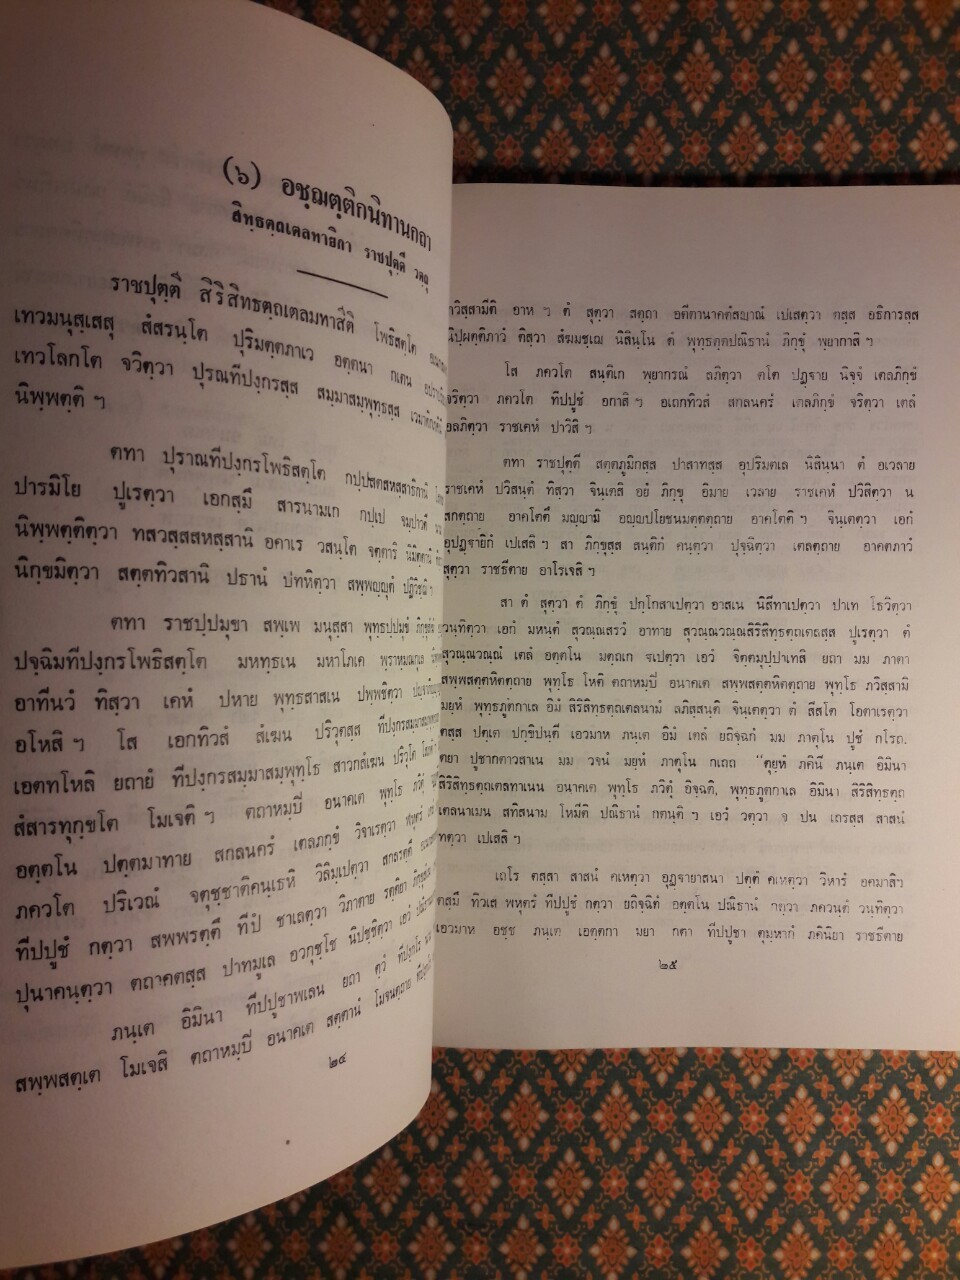 (๖) อชฺฌตฺติกนิทานกถา
สิทฺธตฺถเตลทายิกา ราชปุตฺตี วตฺถุ
ราชปุตฺตี สิริสิทธตฺถเตลมทาสีติ โพธิสตฺโต
เทวมนุสฺเสสุ สํสรนฺโต ปุริมตฺตภาเว อตฺตนา กเตน
เทวโลกโต จวิตฺวา ปุรณทีปงฺกรสฺส สมฺมาสมฺพุทฺธสฺส
นิพฺพตฺติ ฯ
ตทา ปุราณทีปงฺกรโพธิสตฺโต กปฺปสตสหสฺสาธิกานิ
ปารมิโย ปูเรตฺวา เอกสฺมึ สารนามเก กปฺเป จมฺปาวตี
นิพฺพตฺติตฺวา ทสวสฺสสหสฺสานิ อคาเร วสนฺโต จตฺตาริ นิมิตฺตานิ
นิกฺขมิตฺวา สตฺตทิวสานิ ปธานํ ปทหิตฺวา สพฺพญฺญุตํ ปฏิวิชฺฌิ ฯ
ตทา ราชปฺปมุขา สพฺเพ มนุสฺสา พุทฺธปฺปมุขํ
ปจฺฉิมทีปงฺกรโพธิสตฺโต มหทฺธเน มหาโภเค พฺราหฺมณกุเล
อาทีนวํ ทิสฺวา เคหํ ปหาย พุทฺธสาสเน ปพฺพชิตฺวา
อโหสิ ฯ โส เอกทิวสํ สํเฆน ปริวุตสฺส ทีปงฺกรสมฺมาสมฺพุทฺธสฺส
เอตทโหสิ ยถายํ ทีปงฺกรสมฺมาสมฺพุทฺโธ สาวกสํเฆน ปริวุโต
สํสารทุกฺขโต โมเจติ ฯ ตถาหมฺปิ อนาคเต พุทฺโธ
อตฺตโน ปตฺตมาทาย สกลนครํ เตลภกฺขํ วิจาเรตฺวา พหุตรํ
ภควโต ปริเวณํ จตุชฺชาติคนฺเธหิ วิลิมฺเปตฺวา สกลรตฺตึ
ทีปปูชํ กตฺวา สพฺพรตฺตึ ทีปํ ชาเลตฺวา วิภาตาย รตฺติยา
ปุนาคนฺตฺวา ตถาคตสฺส ปาทมูเล อวกุชฺโช นิปชฺชิตฺวา เอวํ
ภนฺเต อิมินา ทีปปูชาพเลน ยถา ตฺวํ ทีปงฺกโร
สพฺพสตฺเต โมเจสิ ตถาหมฺปิ อนาคเต สตฺตานํ โมจนตฺถาย
๒๔
วิสฺสามีติ อาห ฯ ตํ สุตฺวา สตฺถา อตีตานาคตํสญาณํ เปเสตฺวา ตสฺส อธิการสฺส
นิปฺผตฺติภาวํ ทิสฺวา สํฆมชฺเฌ นิสินฺโน ตํ พุทฺธตฺตปณิธานํ ภิกฺขุํ พฺยากาสิ ฯ
โส ภควโต สนฺติเก พฺยากรณํ ลภิตฺวา ตโต ปฏฺฐาย นิจฺจํ เตลภิกฺขํ
จริตฺวา ภควโต ทีปปูชํ อกาสิ ฯ อเถกทิวสํ สกลนครํ เตลภิกฺขํ จริตฺวา เตลํ
อลภิตฺวา ราชเคหํ ปาวิสิ ฯ
ตทา ราชปุตฺตี สตฺตภูมิกสฺส ปาสาทสฺส อุปริมตเล นิสินฺนา ตํ อเวลาย
ราชเคหํ ปวิสนฺตํ ทิสฺวา จินฺเตสิ อยํ ภิกฺขุ อิมาย เวลาย ราชเคหํ ปวิสิตฺวา น
ภตฺตตฺถาย อาคโตติ มญฺญามิ อญฺญปโยชนมตฺตตฺถาย อาคโตติ ฯ จินฺเตตฺวา เอกํ
อุปฏฺฐายิกํ เปเสสิ ฯ สา ภิกฺขุสฺส สนฺติกํ คนฺตฺวา ปุจฺฉิตฺวา เตลตฺถาย อาคตภาวํ
สุตฺวา ราชธีตาย อาโรเจสิ ฯ
สา ตํ สุตฺวา ตํ ภิกฺขุํ ปกฺโกสาเปตฺวา อาสเน นิสีทาเปตฺวา ปาเท โธวิตฺวา
วนฺทิตฺวา เอกํ มหนฺตํ สุวณฺณสรวํ อาทาย สุวณฺณวณฺณสิริสิทฺธตฺถเตลสฺส ปูเรตฺวา ตํ
สุวณฺณวณฺณํ เตลํ อตฺตโน มตฺถเก ฐเปตฺวา เอวํ จิตฺตมุปฺปาเทสิ ยถา มม ภาตา
สพฺพสตฺตหิตตฺถาย พุทฺโธ โหติ ตถาหมฺปิ อนาคเต สพฺพสตฺตหิตตฺถาย พุทฺโธ ภวิสฺสามิ
มยฺหํ พุทฺธภูตกาเล อิมํ สิริสิทฺธตฺถเตลนามํ ลภิสฺสนฺติ จินฺเตตฺวา ตํ สีสโต โอตาเรตฺวา
ตสฺส ปตฺเต ปกฺขิปนฺตี เอวมาห ภนฺเต อิมํ เตลํ ยถิจฺฉกํ มม ภาตุโน ปูชํ กโรถ.
ตยา ปูชากตาวสาเน มม วจนํ มยฺหํ ภาตุโน กเถถ "ตุยฺหํ ภคินี ภนฺเต อิมินา
สิริสิทฺธตฺถเตลทาเนน อนาคเต พุทฺโธ ภวิตุํ อิจฺฉติ, พุทฺธภูตกาเล อิมินา สิริสิทฺธตฺถ
เตลนาเมน สทิสนาม โหมีติ ปณิธานํ กตนฺติ ฯ เอวํ วตฺวา จ ปน เถรสฺส สาสนํ
ทตฺวา เปเสสิ ฯ
เถโร ตสฺสา สาสนํ คเหตฺวา อุฏฺฐายาสนา ปตฺตํ คเหตฺวา วิหารํ อคมาสิ ฯ
ตสฺมึ ทิวเส พหุตรํ ทีปปูชํ กตฺวา ยถิจฺฉิตํ อตฺตโน ปณิธานํ กตฺวา ภควนฺตํ วนฺทิตฺวา
เอวมาห อชฺช ภนฺเต เอตฺตกา มยา กตา ทีปปูชา ตุมฺหากํ ภคินิยา ราชธีตาย
๒๕